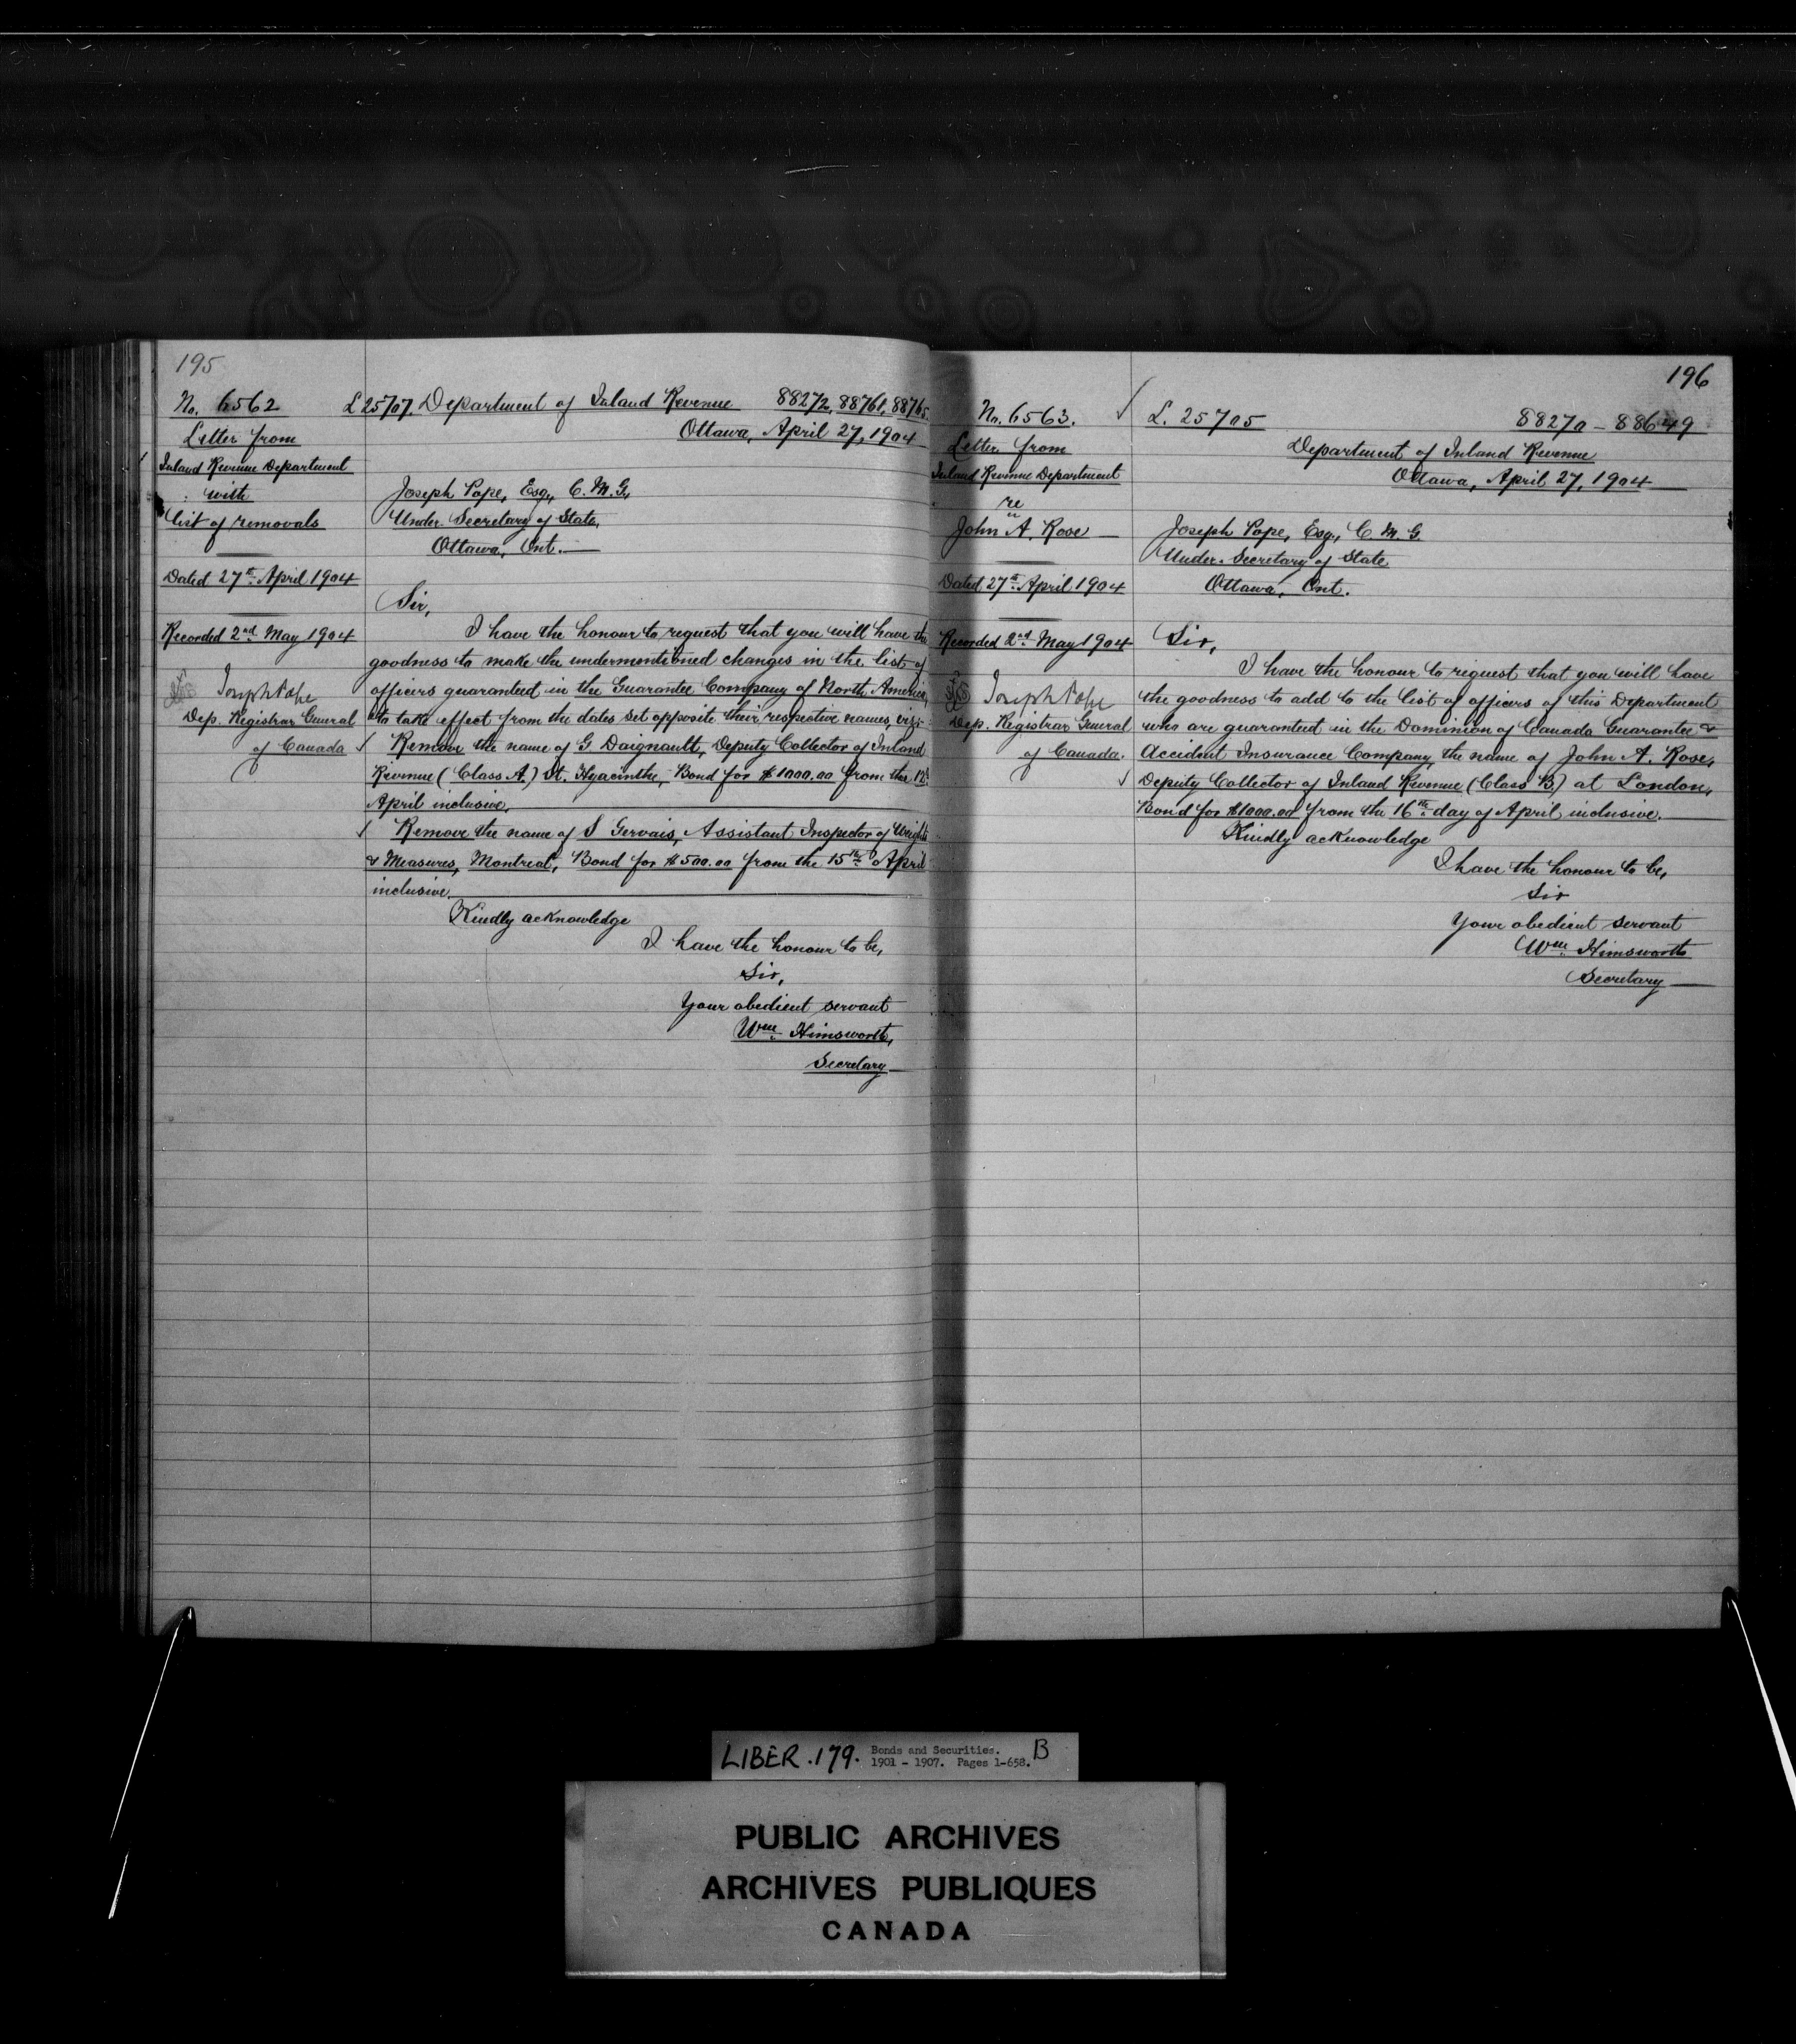 195
No. 6562
Letter from
Inland Revenue Department
with
list of removals
Dated 27th April 1904
Recorded 2nd May 1904
Joseph Pope
Dep. Registrar General
of Canada
L 25707 Department of Inland Revenue 88272, 88761, 88765
Ottawa, April 27, 1904
Joseph Pope, Esq., C.M.G.,
Under-Secretary of State,
Ottawa, Ont.
Sir,
I have the honour to request that you will have the
goodness to make the undermentioned changes in the list of
officers guaranteed in the Guarantee Company of North America,
to take effect from the dates set opposite their respective names, viz:-
Remove the name of G Daignault, Deputy Collector of Inland
Revenue (Class A.) St. Hyacinthe, Bond for $1000.00 from the
April inclusive.
Remove the name of S Gervais, Assistant Inspector of Weights
& Measures, Montreal, Bond for $500.00 from the 15th April
inclusive.
Kindly acknowledge
I have the honour to be,
Sir,
Your obedient servant
Wm. Himsworth,
Secretary
196
No. 6563.
Letter from
Inland Revenue Department
re
John A. Rose
Dated 27th April 1904
Recorded 2nd May 1904
Joseph Pope
Dep. Registrar General
of Canada.
L. 25705 88270 - 88649
Department of Inland Revenue
Ottawa, April 27, 1904
Joseph Pope, Esq., C.M.G.
Under-Secretary of State
Ottawa, Ont.
Sir,
I have the honour to request that you will have
the goodness to add to the list of officers of this Department
who are guaranteed in the Dominion of Canada Guarantee &
Accident Insurance Company, the name of John A. Rose,
Deputy Collector of Inland Revenue (Class B.) at London,
Bond for $1000.00 from the 16th day of April inclusive.
Kindly acknowledge
I have the honour to be,
Sir
Your obedient servant
Wm. Himsworth
Secretary
LIBER .179. Bonds and Securities. B
1901 - 1907. Pages 1-658.
PUBLIC ARCHIVES
ARCHIVES PUBLIQUES
CANADA